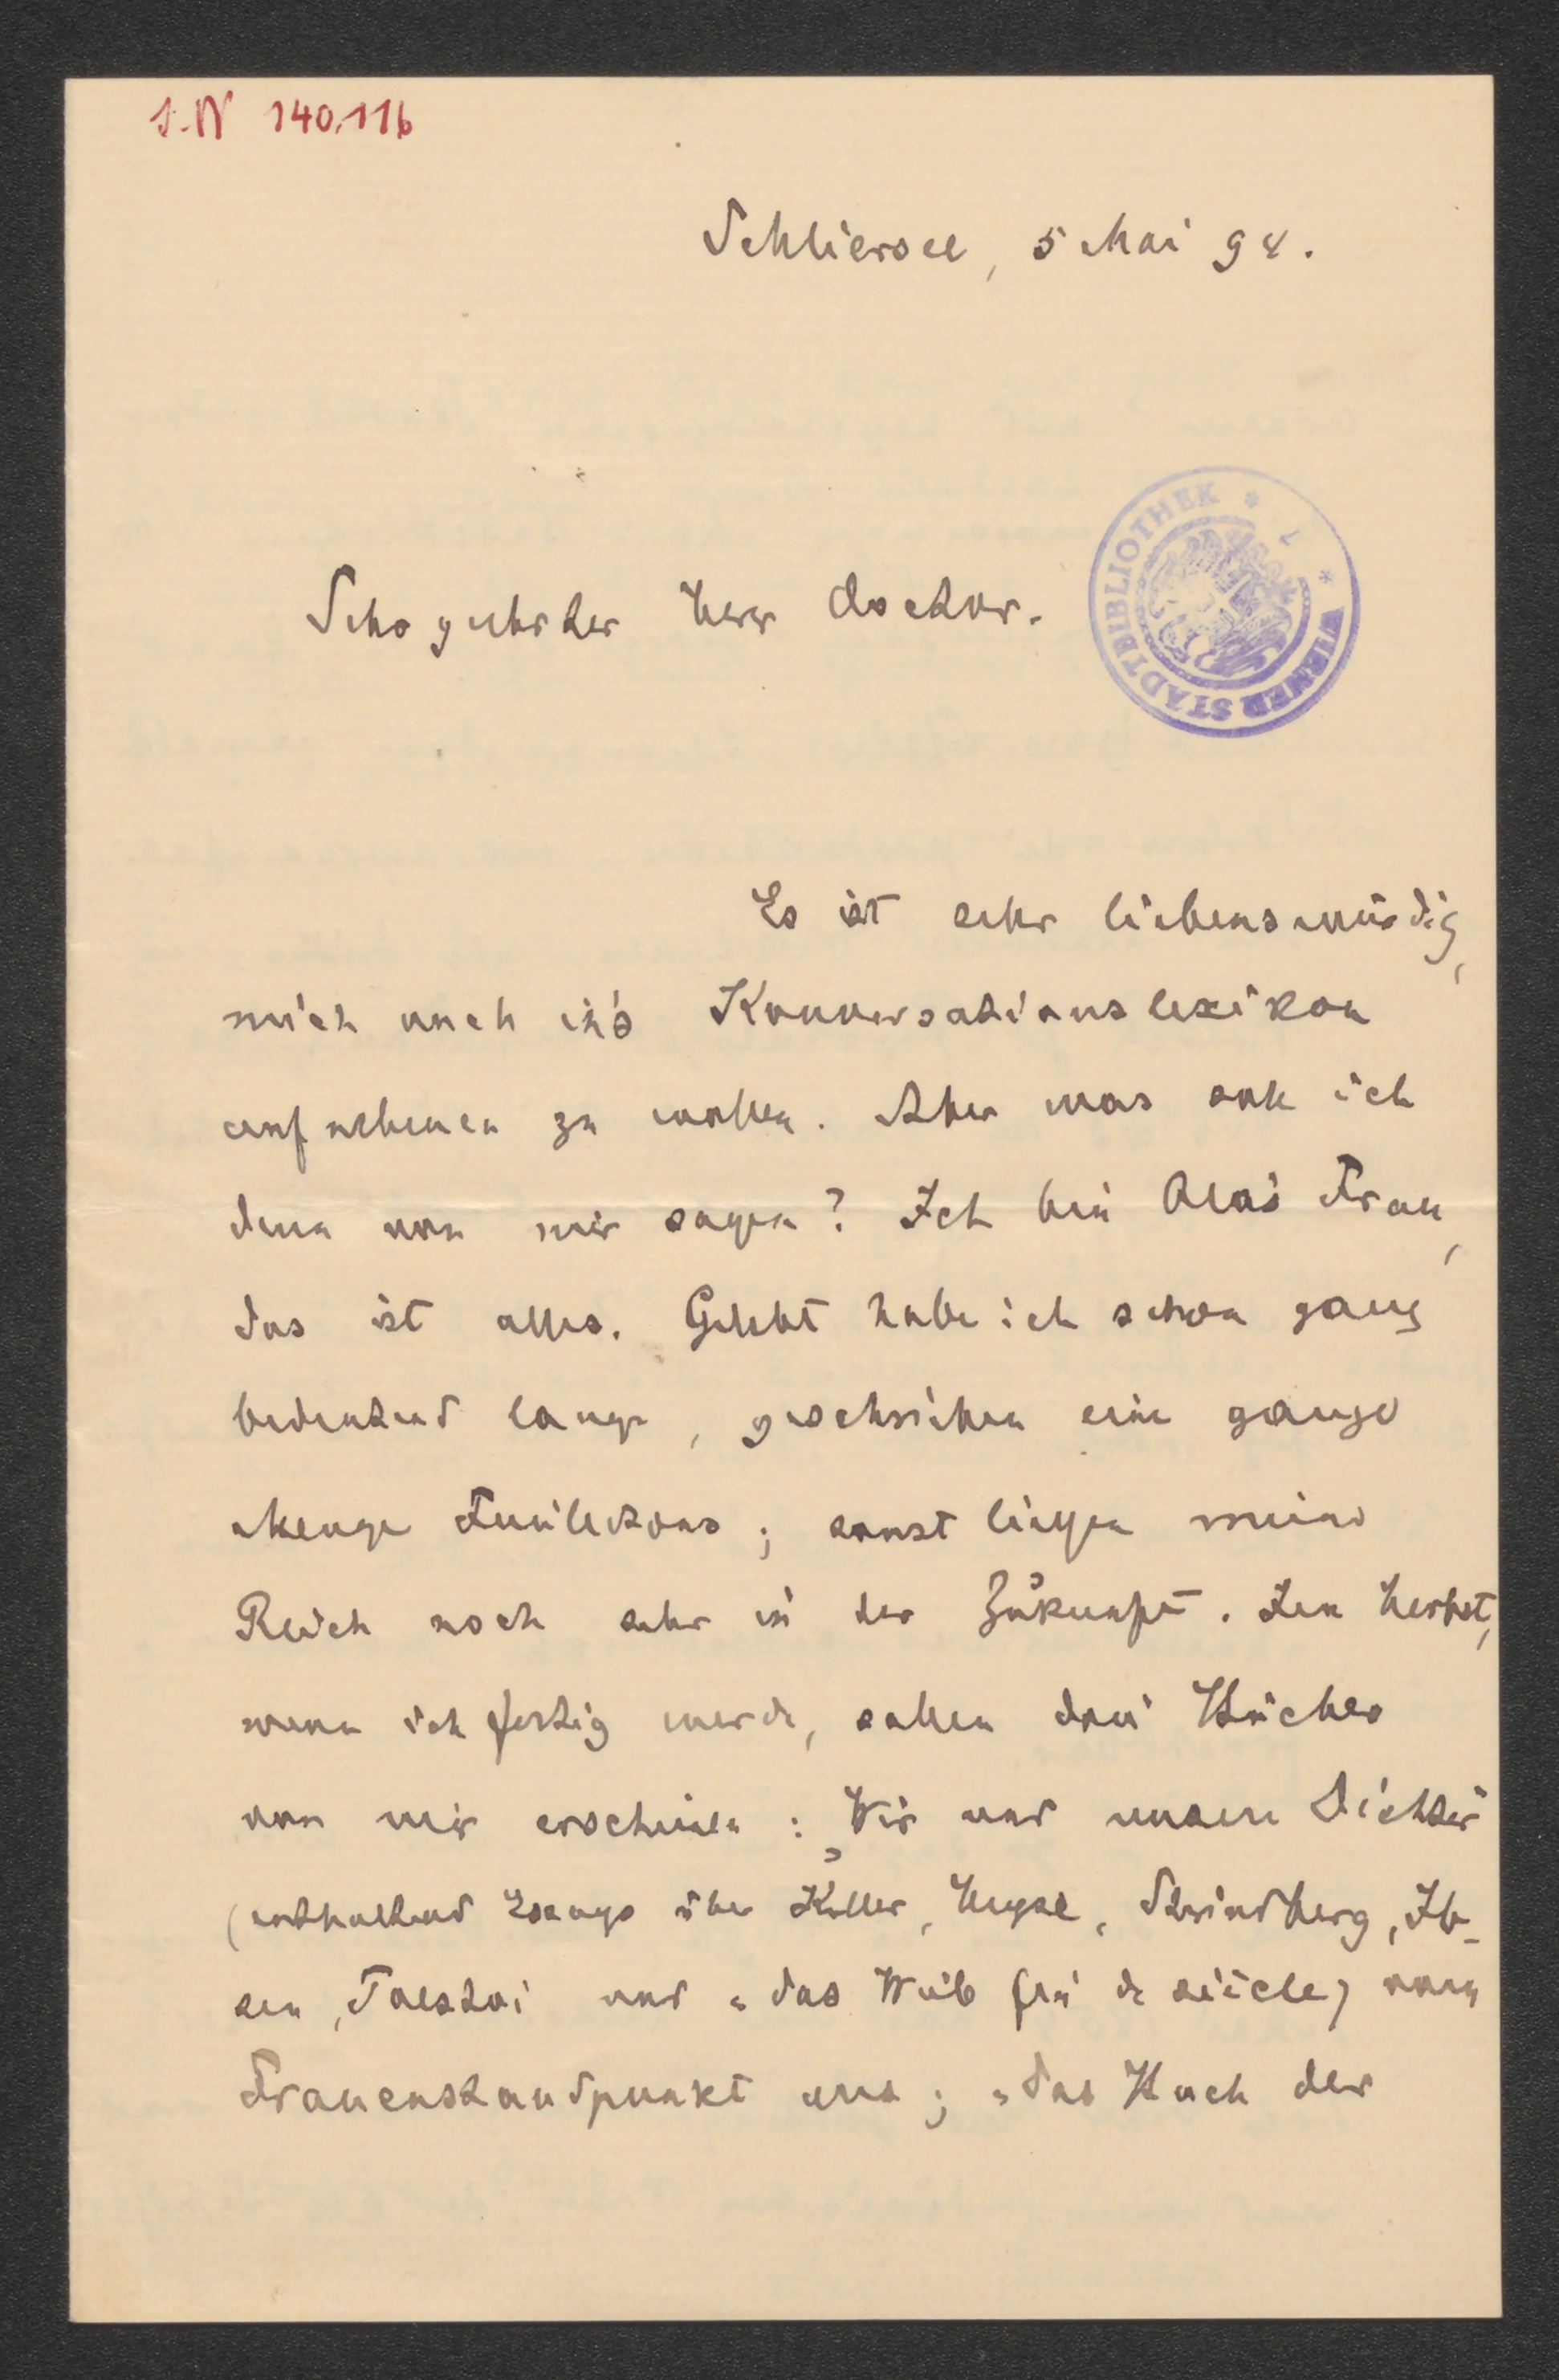 I.N 140.116
Schliersee, 5 Mai 94.
WIENER STADTBIBLIOTHEK
Sehr geehrter Herr Doctor.
Es ist sehr liebenswürdig,
mich noch in's Konversationslexikon
aufnehmen zu wollen. Aber was soll ich
denn von mir sagen? Ich bin Olas Frau,
das ist alles. Gelebt habe ich schon ganz
bedeutend lange, geschrieben eine ganze
Menge Feuilletons; sonst liegen meine
noch sehr in der Zukunft. Im Herbst,
wenn ich fertig werde, sollen drei Bücher
von mir erscheinen: „Wir und unsere Dichter"
(enthaltend Essays über Keller, Heyse, Strindberg, Ib-
sen, Tolstoi und „das Weib fin de siècle) vom
Frauenstandpunkt aus; „das Buch der